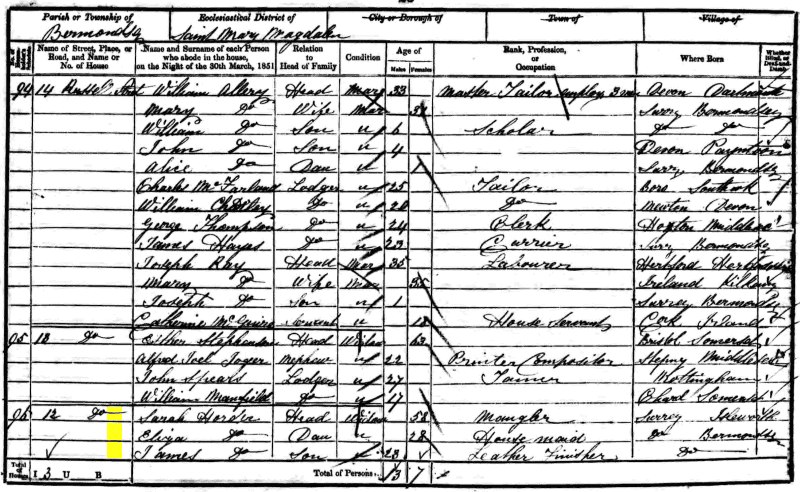 Parish or Township of Ecclesiastical District of City or Borough of Town of Village of
Bermondsey Saint Mary Magdalen
Name of Street, Place, or Road, and Name or No. of House Name and Surname of each Person who abode in the house, on the Night of the 30th March, 1851 Relation to Head of Family Condition Age of Males Females Rank, Profession, or Occupation Where Born Whether Blind, or Deaf-and-Dumb
94 14 William Allery Head Mar 33 Master Tailor employ 3 men Devon Dartmouth
Mary Do Wife Mar Surry Bermondsey
William Do Son u 6 Scholar Do Do
John Do Son u 4 Devon
Alice Do Dau u 1 Surry Bermondsey
Charles McFarland Lodger u 25 Tailor
William Do u 20 Do Newton Devon
George Thompson Do u 24 Clerk
James Hayes Do u 23 Currier Surry Bermondsey
Joseph Ray Head Mar 35 Labourer Hertford
Mary Do Wife Mar Ireland
Joseph Do Son u 1 Surrey Bermondsey
Catherine Servant u 18 House Servant Cork Ireland
95 13 Do Esther Stephenson Head Widow 63 Bristol Somerset
Alfred Joel Nephew u 22 Printer Compositor Stepny
John Spears Lodger u 27 Tanner Nottingham
William Do u 17
96 12 Do Sarah Head Widow 58 Mangler Surrey
Eliza Do Dau u 28 House maid Do Bermondsey
James Do Son 23 Leather Finisher Do
Total of Houses 1 3 U B Total of Persons 13 7